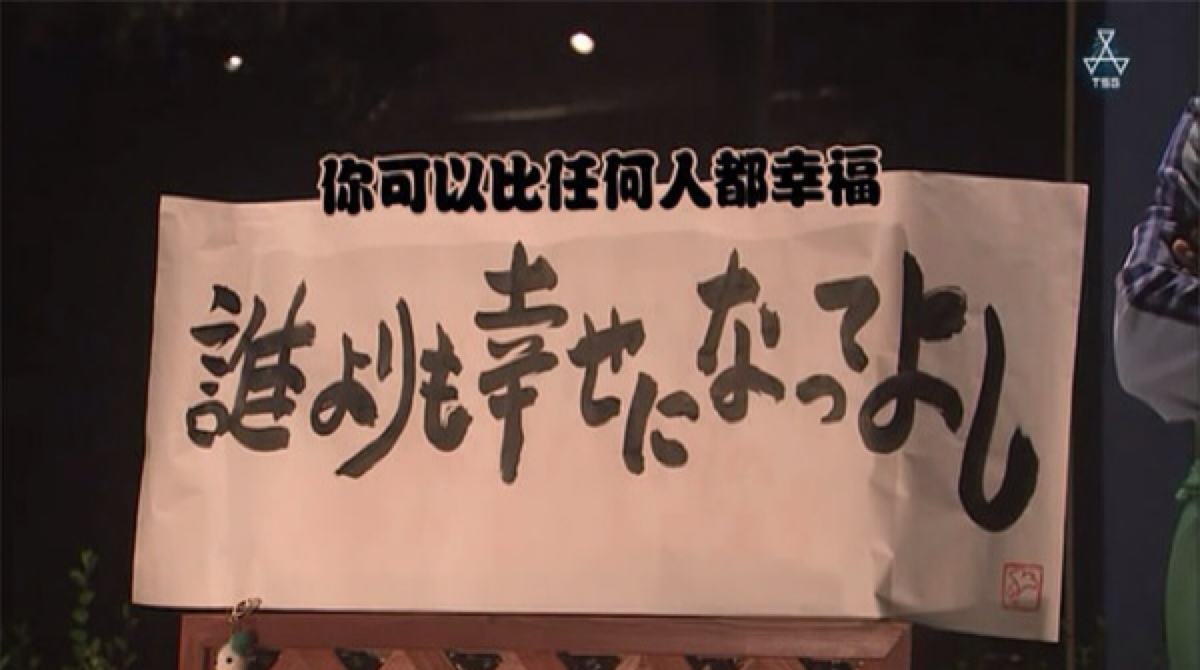 TSS
你可以比任何人都幸福
誰よりも幸せになってよし